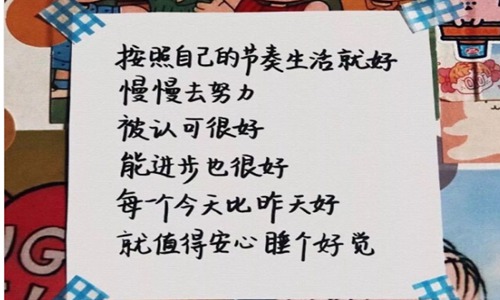 按照自己的节奏生活就好
慢慢去努力
被认可很好
能进步也很好
每一个今天比昨天好
就值得安心睡个好觉